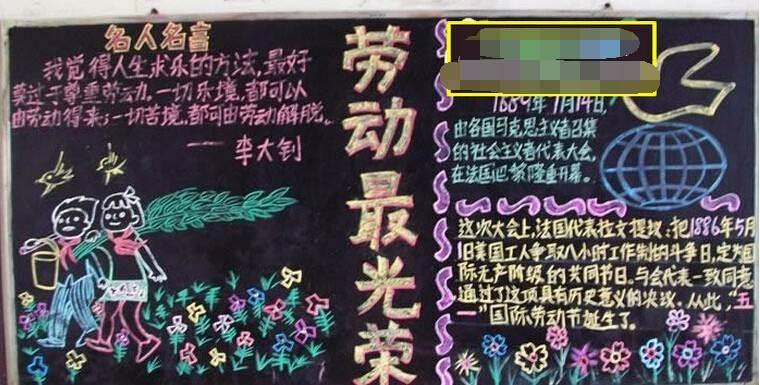 名人名言
我觉得人生求乐的方法,最好
莫过于尊重劳动,一切乐境,都可以
由劳动得来;一切苦境,都可由劳动解脱。
——李大钊
劳动最光荣
1889年7月14日,
由各国马克思主义者召集
的社会主义者代表大会,
在法国巴黎隆重开幕。
这次大会上,法国代表拉文提议:把1886年5月
1日美国工人争取八小时工作制的斗争日,定为国
际无产阶级的共同节日。与会代表一致同意
通过了这项具有历史意义的决议。从此,“五
一”国际劳动节诞生了。